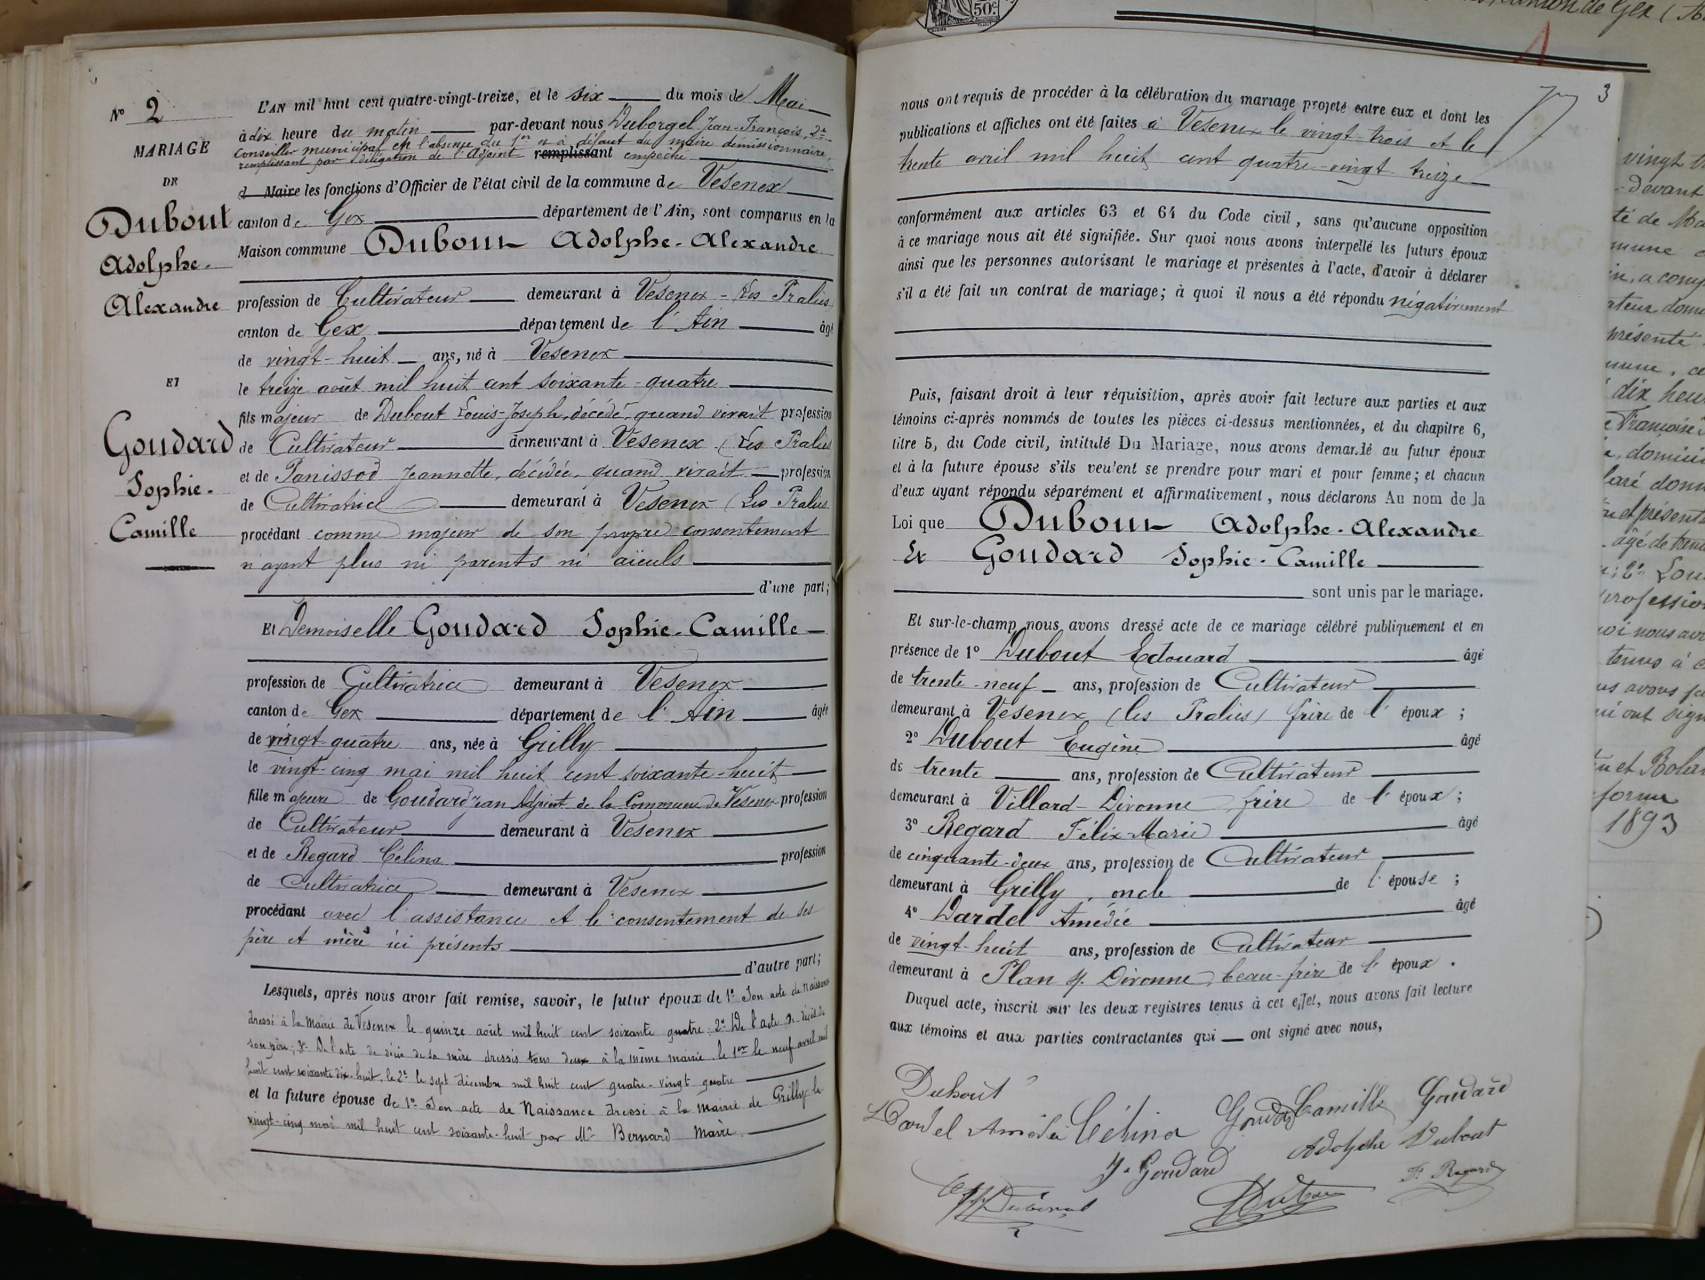 50c.
canton de Gex (
N° 2
MARIAGE
DE
Dubout
Adolphe-
Alexandre
ET
Goudard
Sophie-
Camille
L'AN mil huit cent quatre-vingt-treize, et le six du mois de Mai
à dix heure du matin par-devant nous Duborgel Jean-François, 2e
Conseiller municipal en l'absence du 1er et à défaut du maire démissionnaire,
remplissant par délégation de l'Adjoint remplissant empêché
d Maire les fonctions d'Officier de l'état civil de la commune de Vesenex
canton de Gex département de l'Ain, sont comparus en la
Maison commune Dubout Adolphe-Alexandre
profession de Cultivateur demeurant à Vesenex - Les Pralies
canton de Gex département de l'Ain âgé
de vingt-huit ans, né à Vesenex
le treize août mil huit cent soixante-quatre
fils majeur de Dubout Louis-Joseph, décédé, quand vivait profession
de Cultivateur demeurant à Vesenex (Les Pralies
et de Panissod Jeannette, décédée, quand vivait profession
de Cultivatrice demeurant à Vesenex (Les Pralies
procédant comme majeur de son propre consentement
n'ayant plus ni parents ni aïeuls
d'une part;
Et Demoiselle Goudard Sophie-Camille
profession de Cultivatrice demeurant à Vesenex
canton de Gex département de l'Ain âgée
de vingt quatre ans, née à Grilly
le vingt-cinq mai mil huit cent soixante-huit
fille majeure de Goudard Jean Adjoint de la Commune de Vesenex profession
de Cultivateur demeurant à Vesenex
et de Regard Célina profession
de Cultivatrice demeurant à Vesenex
procédant avec l'assistance et le consentement de ses
père et mère ici présents
d'autre part;
Lesquels, après nous avoir fait remise, savoir, le futur époux de 1° Son acte de Naissance
dressé à la Mairie de Vesenex le quinze août mil huit cent soixante quatre, 2° De l'acte de décès de
son père; 3° De l'acte de décès de sa mère dressés tous deux à la même mairie le 1er le neuf avril mil
huit cent soixante dix-huit, le 2e le sept décembre mil huit cent quatre-vingt quatre
et la future épouse de 1° Son acte de Naissance dressé à la mairie de Grilly le
vingt-cinq mai mil huit cent soixante-huit par Mr Bernard Maire
3
nous ont requis de procéder à la célébration du mariage projeté entre eux et dont les
publications et affiches ont été faites à Vesenex le vingt-trois et le
trente avril mil huit cent quatre-vingt treize
conformément aux articles 63 et 64 du Code civil, sans qu'aucune opposition
à ce mariage nous ait été signifiée. Sur quoi nous avons interpellé les futurs époux
ainsi que les personnes autorisant le mariage et présentes à l'acte, d'avoir à déclarer
s'il a été fait un contrat de mariage; à quoi il nous a été répondu négativement
Puis, faisant droit à leur réquisition, après avoir fait lecture aux parties et aux
témoins ci-après nommés de toutes les pièces ci-dessus mentionnées, et du chapitre 6,
titre 5, du Code civil, intitulé Du Mariage, nous avons demandé au futur époux
et à la future épouse s'ils veulent se prendre pour mari et pour femme; et chacun
d'eux ayant répondu séparément et affirmativement, nous déclarons Au nom de la
Loi que Dubout Adolphe-Alexandre
Et Goudard Sophie-Camille
sont unis par le mariage.
Et sur-le-champ nous avons dressé acte de ce mariage célébré publiquement et en
présence de 1° Dubout Edouard âgé
de trente-neuf ans, profession de Cultivateur
demeurant à Vesenex (les Pralies) frère de l'époux;
2° Dubout Eugène âgé
de trente ans, profession de Cultivateur
demeurant à Villard-Divonne frère de l'époux;
3° Regard Félix-Marie âgé
de cinquante-deux ans, profession de Cultivateur
demeurant à Grilly, oncle de l'épouse;
4° Dardel Amédée âgé
de vingt-huit ans, profession de Cultivateur
demeurant à Plan s. Divonne beau-frère de l'époux.
Duquel acte, inscrit sur les deux registres tenus à cet effet, nous avons fait lecture
aux témoins et aux parties contractantes qui ont signé avec nous,
Dubout
Goudard Camille Goudard
Dardel Amédée Célina
Adolphe Dubout
J. Goudard
F. Regard
1893